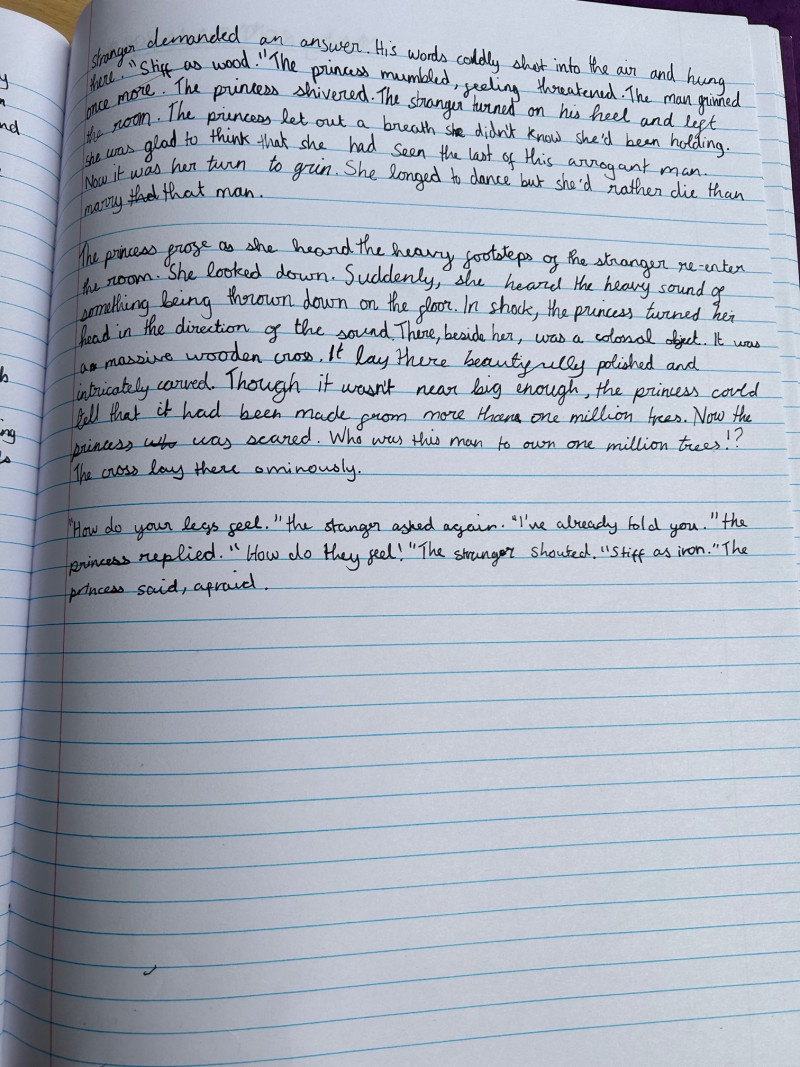 y
nd
stranger demanded an answer. His words coldly shot into the air and hung
there. "Stiff as wood." The princess mumbled, feeling threatened. The man grinned
once more. The princess shivered. The stranger turned on his heel and left
the room. The princess let out a breath she didn't know she'd been holding.
She was glad to think that she had seen the last of this arrogant man.
Now it was her turn to grin. She longed to dance but she'd rather die than
marry that that man.
The princess froze as she heard the heavy footsteps of the stranger re-enter
the room. She looked down. Suddenly, she heard the heavy sound of
something being thrown down on the floor. In shock, the princess turned her
head in the direction of the sound. There, beside her, was a colossal object. It was
a massive wooden cross. It lay there beautifully polished and
intricately carved. Though it wasn't near big enough, the princess could
tell that it had been made from more than one million trees. Now the
princess was scared. Who was this man to own one million trees!?
The cross lay there ominously.
ing
"How do your legs feel." the stanger asked again. "I've already told you." the
princess replied. "How do they feel!" The stranger shouted. "Stiff as iron." The
princess said, afraid.